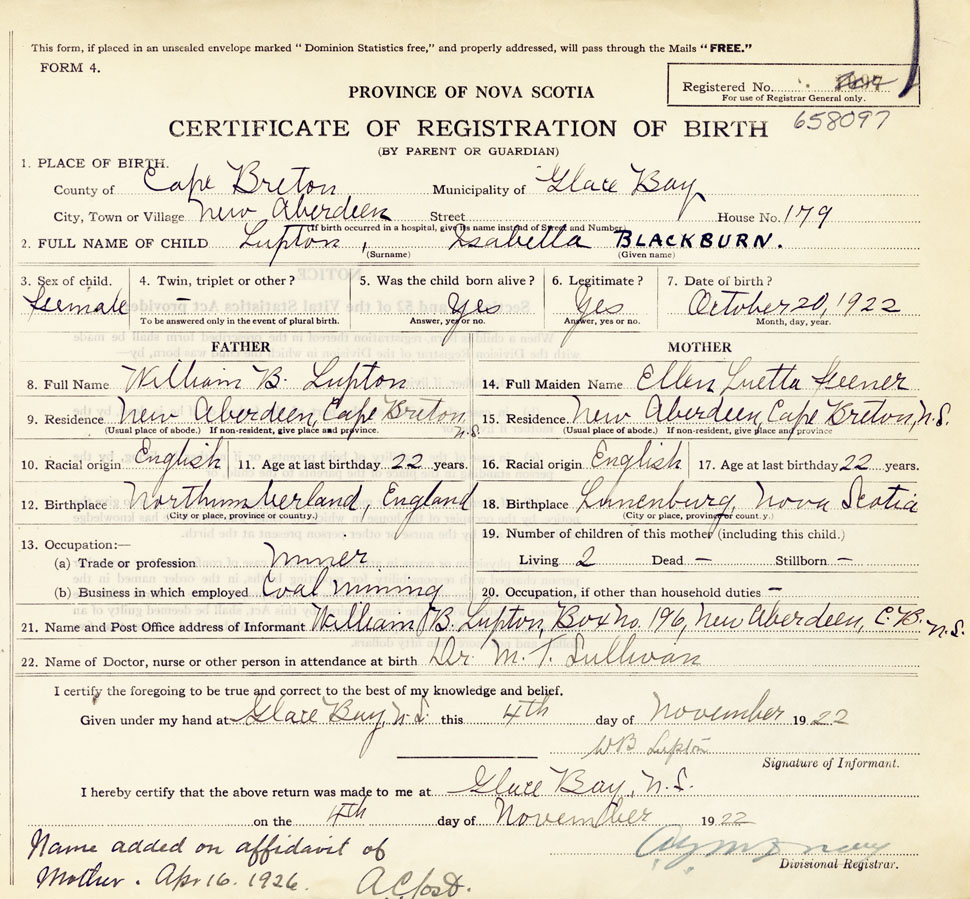 This form, if placed in an unsealed envelope marked “ Dominion Statistics free,” and properly addressed, will pass through the Mails “FREE.”
FORM 4.
Registered No.
For use of Registrar General only.
PROVINCE OF NOVA SCOTIA
658097
CERTIFICATE OF REGISTRATION OF BIRTH
(BY PARENT OR GUARDIAN)
1. PLACE OF BIRTH.
County of Cape Breton Municipality of Glace Bay
City, Town or Village New Aberdeen Street House No. 179
(If birth occurred in a hospital, give its name instead of Street and Number)
2. FULL NAME OF CHILD Lupton, Isabella BLACKBURN.
(Surname) (Given name)
3. Sex of child. 4. Twin, triplet or other? 5. Was the child born alive? 6. Legitimate? 7. Date of birth?
Female – Yes Yes October 20, 1922
To be answered only in the event of plural birth. Answer, yes or no. Answer, yes or no. Month, day, year.
FATHER MOTHER
8. Full Name William B. Lupton 14. Full Maiden Name Ellen Luetta Feener
9. Residence New Aberdeen, Cape Breton N.S. 15. Residence New Aberdeen, Cape Breton, N.S.
(Usual place of abode.) If non-resident, give place and province. (Usual place of abode.) If non-resident, give place and province
10. Racial origin English 11. Age at last birthday 22 years. 16. Racial origin English 17. Age at last birthday 22 years.
12. Birthplace Northumberland, England 18. Birthplace Lunenburg, Nova Scotia
(City or place, province or country.) (City or place, province or county.)
13. Occupation:— 19. Number of children of this mother (including this child.)
(a) Trade or profession Miner Living 2 Dead – Stillborn –
(b) Business in which employed Coal mining 20. Occupation, if other than household duties –
21. Name and Post Office address of Informant William B. Lupton, Box No. 196, New Aberdeen, C.B. N.S.
22. Name of Doctor, nurse or other person in attendance at birth Dr. M. T. Sullivan
I certify the foregoing to be true and correct to the best of my knowledge and belief.
Given under my hand at Glace Bay, N.S. this 4th day of November 1922
WB Lupton
Signature of Informant.
I hereby certify that the above return was made to me at Glace Bay, N.S.
on the 4th day of November 1922
Divisional Registrar.
Name added on affidavit of
Mother. Apr 16. 1926.